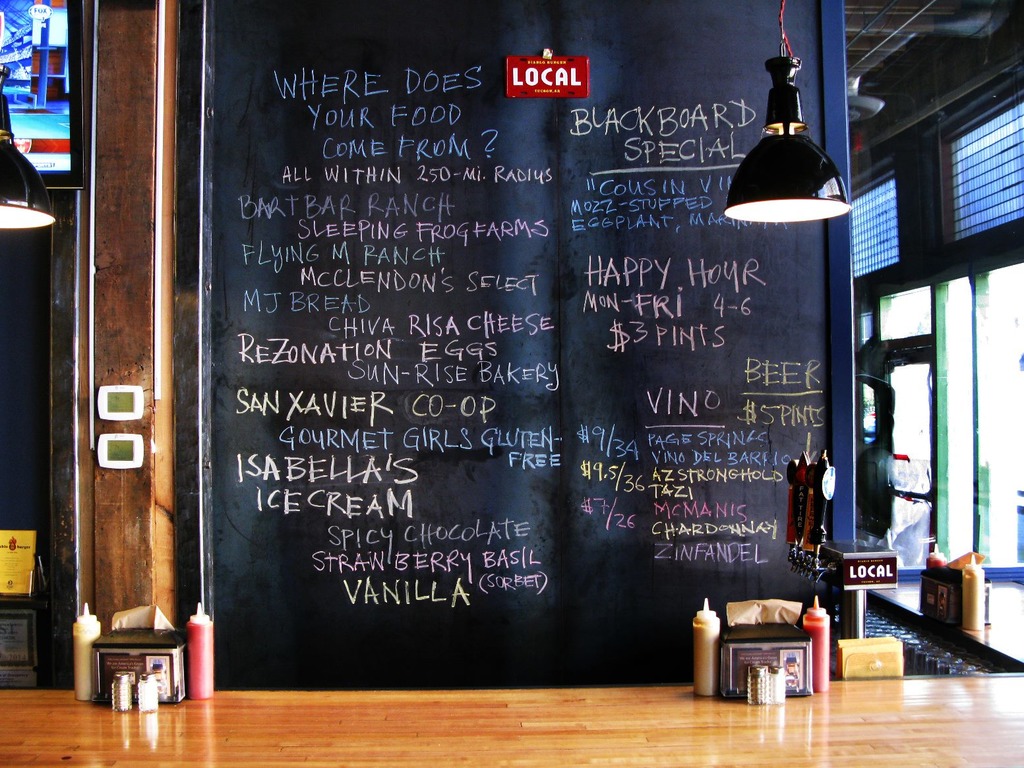 DIABLO BURGER
LOCAL
TUCSON, AZ
WHERE DOES
YOUR FOOD
COME FROM?
ALL WITHIN 250-MI. RADIUS
BARTBAR RANCH
SLEEPING FROG FARMS
FLYING M RANCH
MCCLENDON'S SELECT
MJ BREAD
CHIVA RISA CHEESE
REZONATION EGGS
SUN-RISE BAKERY
SAN XAVIER CO-OP
GOURMET GIRLS GLUTEN-
FREE
ISABELLA'S
ICE CREAM
SPICY CHOCOLATE
STRAWBERRY BASIL
(SORBET)
VANILLA
BLACKBOARD
SPECIAL
"COUSIN
MOZZ-STUFFED
EGGPLANT,
HAPPY HOUR
MON-FRI 4-6
$3 PINTS
BEER
$5 PINTS
VINO
$9/34 PAGE SPRINGS
VINO DEL BARRIO
$9.5/36 AZ STRONGHOLD
TAZI
$7/26 MCMANIS
CHARDONNAY
ZINFANDEL
FAT TIRE
LOCAL
FOX